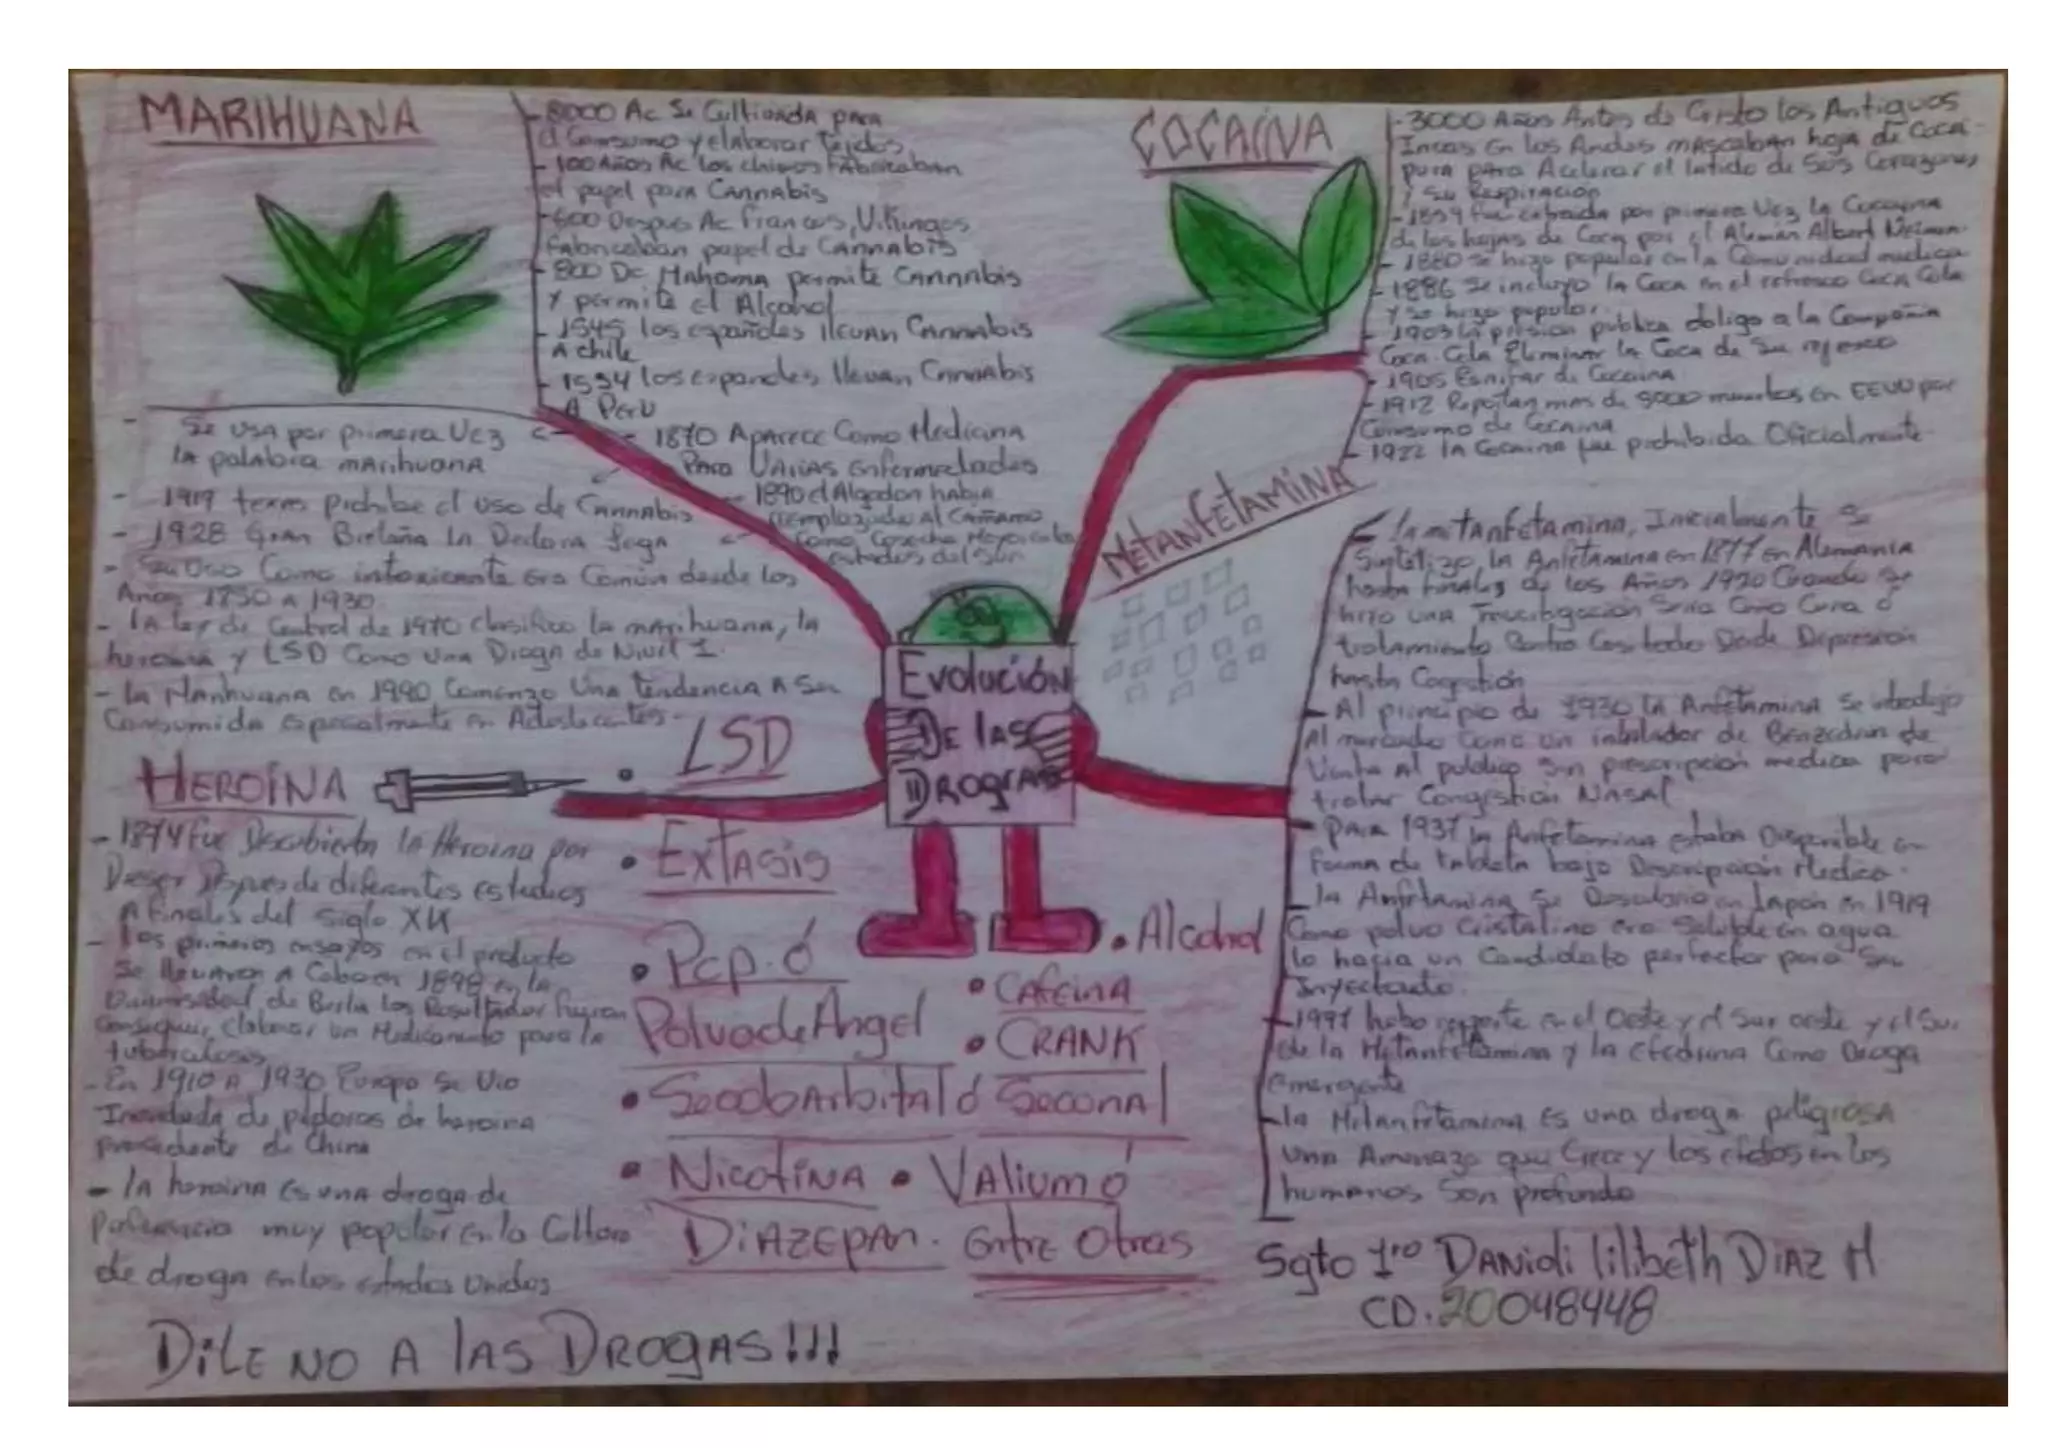 MARIHUANA
- 8000 Ac Se Cultivada para
el Consumo y elaborar tejidos
- 100 Años Ac los chinos Fabricaban
el papel para CANNAbis
- 600 Despues Ac francos, Vikingos
fabricaban papel de CANNAbis
- 800 Dc Mahoma permite Cannabis
y permite el Alcohol
- 1545 los españoles llevan Cannabis
A chile
- 1554 los españoles llevan Cannabis
A Perú
- 1870 Aparece Como Medicina
Para Varias enfermedades
- 1890 el Algodon habia
remplazado al Cañamo
Como Cosecha Mayor en los
estados del Sur
- Se usa por primera Vez
la palabra marihuana
- 1919 texas prohibe el uso de Cannabis
- 1928 Gran Bretaña la Declara
- Su Uso Como intoxicante era Común desde los
Años 1850 A 1930
- la ley de Control de 1970 clasifico la marihuana, la
heroina y LSD Como una Droga de Nivel 1.
- la Marihuana en 1990 Comenzo Una tendencia A Ser
Consumida especialmente en Adolecentes.
COCAÍNA
- 3000 Años Antes de Cristo los Antiguos
Incas en los Andes mascaban hoja de Coca
pura para Acelerar el latido de Sus Corazones
y Su Respiración
- 1859 fue extraida por primera Vez la Cocayna
de las hojas de Coca por el Aleman Albert
- 1880 se hizo popular en la Comunidad medica
- 1886 Se incluyo la Coca en el refresco Coca Cola
y se hizo popular.
- 1903 la presion publica obligo a la Compañia
Coca-Cola Eliminar la Coca de Su refresco
- 1905 Esnifar de Cocaina
- 1912 Reportan mas de 5000 muertos en EEUU por
Consumo de Cocaina
- 1922 la Cocaina fue prohibida Oficialmente
METANFETAMINA
- la metanfetamina, Inicialmente Se
Sintetizo, la Anfetamina en 1877 en Alemania
hasta finales de los Años 1920 Cuando se
hizo una Investigacion Seria Como Cura ó
tratamiento Contra Casi todo Desde Depresion
hasta Cogestion
- Al principio de 1930 la Anfetamina Se introdujo
Al mercado Como un inhalador de Benzedrin de
Venta al publico Sin prescripcion medica para
tratar Congestion Nasal
- Para 1937 la Anfetamina estaba Disponible en
forma de tableta bajo Descripcion Medica.
- la Anfetamina Se Descubrio en Japon en 1919
Como polvo Cristalino era Soluble en agua
lo hacia un Candidato perfector para Ser
Inyectado.
- 1997 hubo reporte en el Oeste y el Sur oeste y el Sur
de la Metanfetamina y la efedrina Como Droga
emergente
- la Metanfetamina es una droga peligrosa
Una Amenaza que Crece y los efectos en los
humanos Son profundo
Evolución
De las
Drogras
HEROÍNA
- 1874 fue Descubierta la Heroina por
Dreser Despues de diferentes estudios
A finales del Siglo XIX
- los primeros ensayos en el producto
Se llevaron A Cabo en 1898 en la
Universidad de Berlin los Resultados fueron
Conseguir, elaborar un Medicamento para la
tuberculosis
- En 1910 A 1930 Europa Se Vio
Inundada de pildoras de heroina
procedente de China
- la heroina es una droga de
Preferencia muy popular en la Cultura
de droga en los estados Unidos
• LSD
• Extasis
• Pcp. ó
Polvo de Angel
• Alcohol
• Cafeina
• CRANK
• SecobArbital ó Seconal
• NicotíNA • Valium ó
DiAZEpAn. Entre Otras
Sgto 1ro DANIoli lilibeth DIAZ M
CD. 20048448
DiLE NO A lAS DROGAS!!!